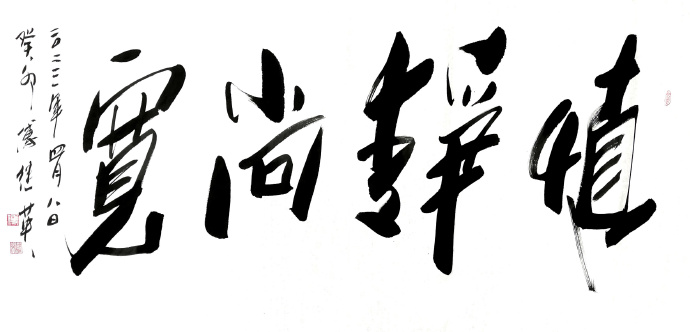 慎靜尚寬
二〇二三年四月八日
癸卯